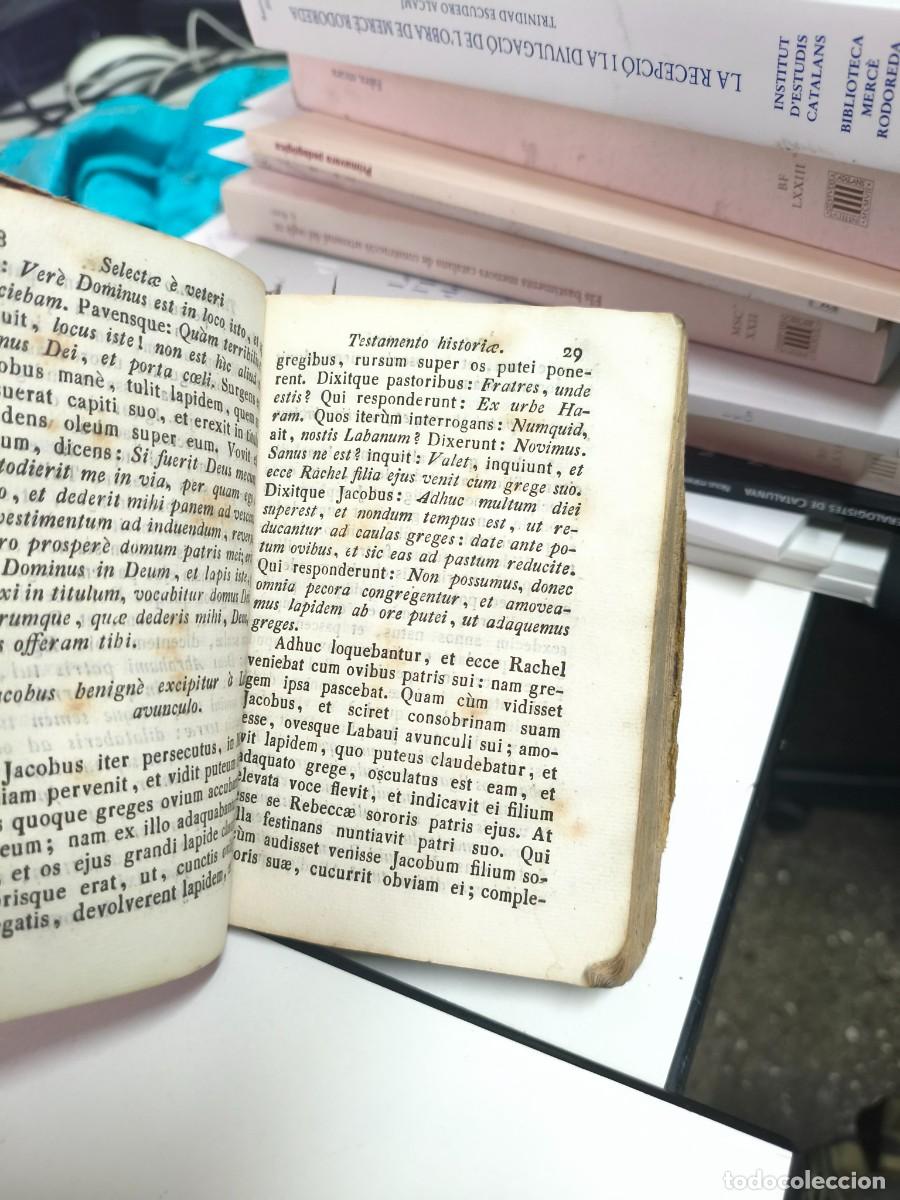 8
Selectæ è veteri
: Verè Dominus est in loco isto, et
ciebam. Pavensque: Quàm terribilis
uit, locus iste! non est hìc aliud
mus Dei, et porta cœli. Surgens
obus manè, tulit lapidem, quem
suerat capiti suo, et erexit in
dens oleum super eum. Vovit
um, dicens: Si fuerit Deus mecum
todierit me in via, per quam ego
o, et dederit mihi panem ad
vestimentum ad induendum,
ro prosperè domum patris mei;
Dominus in Deum, et lapis iste,
xi in titulum, vocabitur domus
rumque, quæ dederis mihi,
s offeram tibi.
acobus benignè excipitur à
avunculo.
Jacobus iter persecutus, in
iam pervenit, et vidit puteum
s quoque greges ovium
eum; nam ex illo
, et os ejus grandi lapide
risque erat, ut, cunctis
gatis, devolverent lapidem,
Testamento historiæ. 29
gregibus, rursum super os putei pone-
rent. Dixitque pastoribus: Fratres, unde
estis? Qui responderunt: Ex urbe Ha-
ram. Quos iterùm interrogans: Numquid,
ait, nostis Labanum? Dixerunt: Novimus.
Sanus ne est? inquit: Valet, inquiunt, et
ecce Rachel filia ejus venit cum grege suo.
Dixitque Jacobus: Adhuc multum diei
superest, et nondum tempus est, ut re-
ducantur ad caulas greges: date ante po-
tum ovibus, et sic eas ad pastum reducite.
Qui responderunt: Non possumus, donec
omnia pecora congregentur, et amovea-
mus lapidem ab ore putei, ut adaquemus
greges.
Adhuc loquebantur, et ecce Rachel
veniebat cum ovibus patris sui: nam gre-
gem ipsa pascebat. Quam cùm vidisset
Jacobus, et sciret consobrinam suam
esse, ovesque Labaui avunculi sui; amo-
vit lapidem, quo puteus claudebatur, et
adaquato grege, osculatus est eam, et
elevata voce flevit, et indicavit ei filium
esse se Rebeccæ sororis patris ejus. At
lla festinans nuntiavit patri suo. Qui
cùm audisset venisse Jacobum filium so-
oris suæ, cucurrit obviam ei; comple-
LA RECEPCIÓ I LA DIVULGACIÓ DE L'OBRA DE MERCÈ RODOREDA
TRINIDAD ESCUDERO ALCAMÍ
INSTITUT
D'ESTUDIS
CATALANS
BIBLIOTECA
MERCÈ
RODOREDA
BF
LXXIII
Primavera pedagògica
Els bastiments menors catalans de construcció artesanal del segle XX
MSC
XXII
ERALOGISTES DE CATALUNYA
todocoleccion